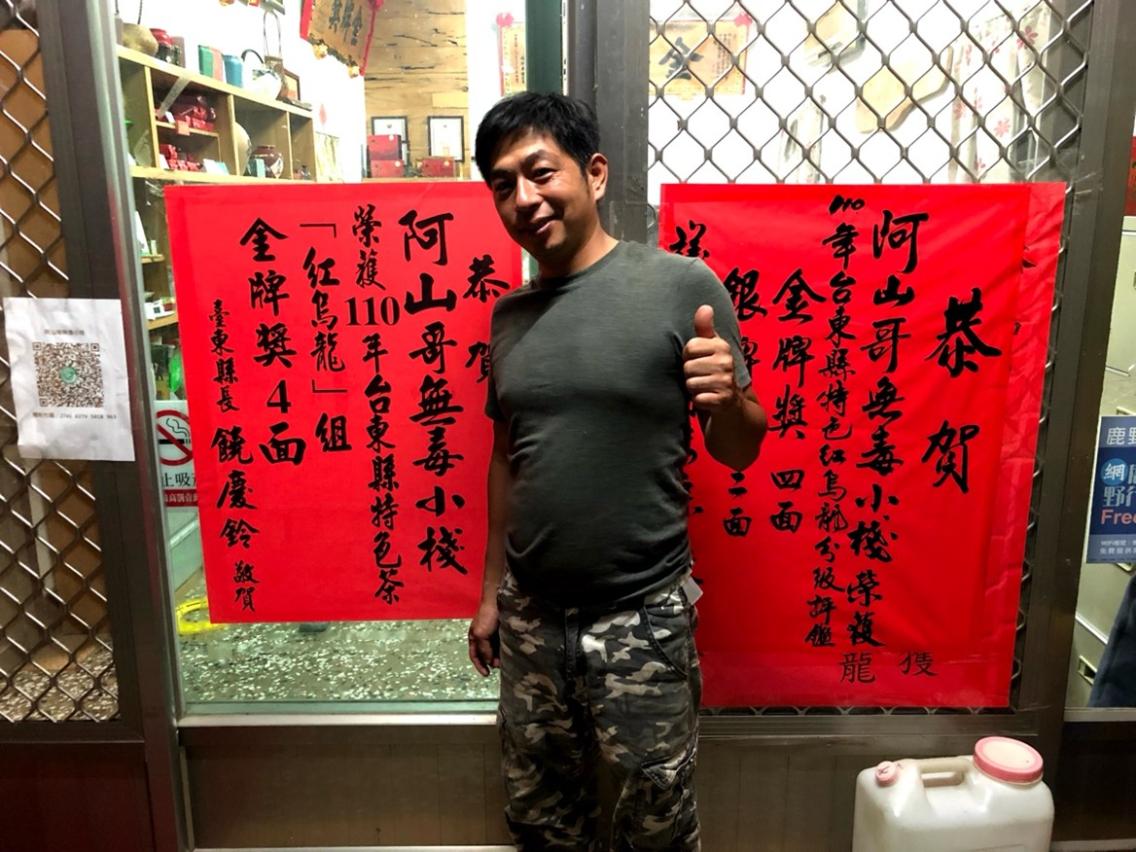 恭賀
阿山哥無毒小棧 榮獲
110年台東縣特色紅烏龍分級評鑑
金牌獎 四面
銀牌 二面
獲
龍
恭賀
阿山哥無毒小棧
榮獲110年台東縣特色茶
「紅烏龍」組
金牌獎4面
臺東縣長 饒慶鈴 敬賀
止吸
鹿野
網
野行
Free